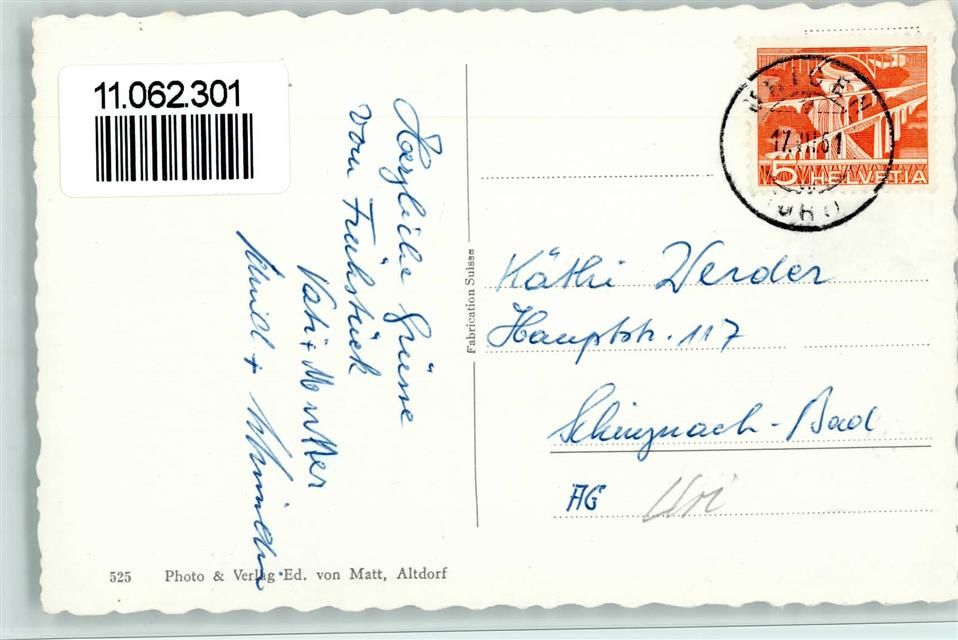 11.062.301
Herzliche Grüsse
vom Frühstück
Vati + Mutter
+
Fabrication Suisse
5 HELVETIA
17.
61
Käthi Werder
Hauptstr. 117
Schinznach-Bad
AG Uri
525 Photo & Verlag Ed. von Matt, Altdorf